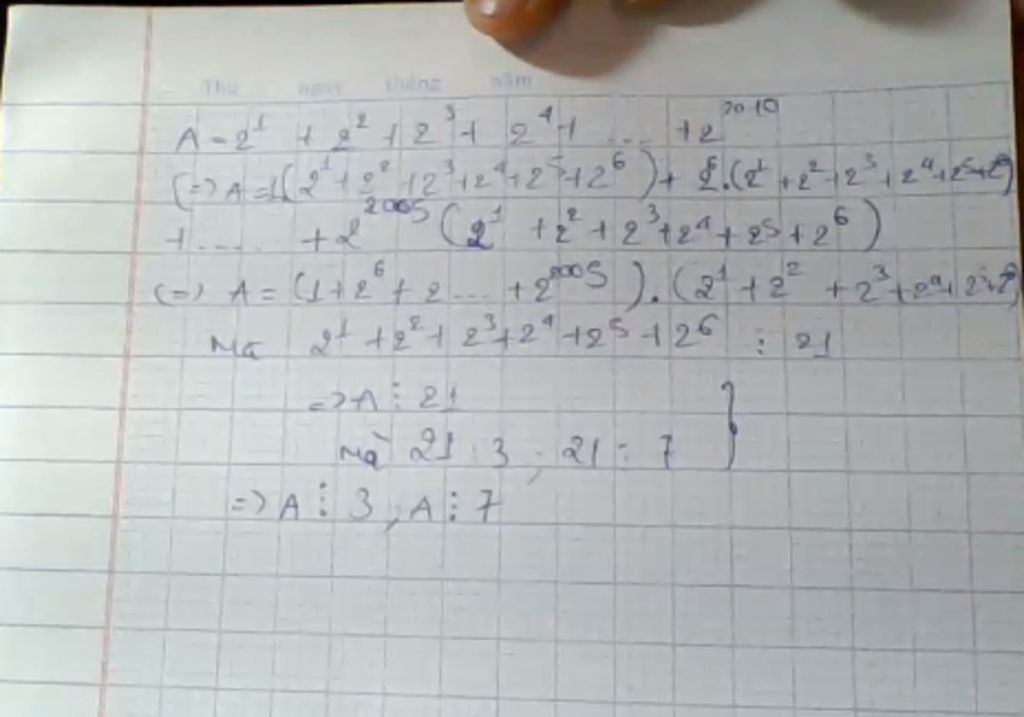 Thứ ngày tháng năm
A = 2¹ + 2² + 2³ + 2⁴ + .... + 2²⁰¹⁰
(=) A = 1.(2¹ + 2² + 2³ + 2⁴ + 2⁵ + 2⁶) + 2⁶.(2¹ + 2² + 2³ + 2⁴ + 2⁵ + 2⁶)
+ ..... + 2²⁰⁰⁵ (2¹ + 2² + 2³ + 2⁴ + 2⁵ + 2⁶)
(=) A = (1 + 2⁶ + 2 ... + 2²⁰⁰⁵).(2¹ + 2² + 2³ + 2⁴ + 2⁵ + 2⁶)
Mà 2¹ + 2² + 2³ + 2⁴ + 2⁵ + 2⁶ ⋮ 21
=> A ⋮ 21 }
mà 21 : 3 ; 21 : 7
=> A ⋮ 3 , A ⋮ 7